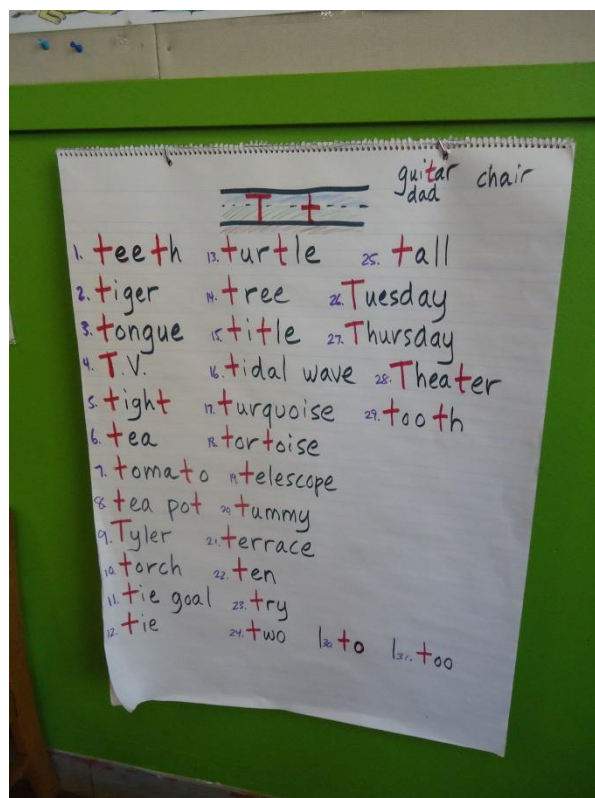 guitar chair
dad
T t
1. teeth
2. tiger
3. tongue
4. T.V.
5. tight
6. tea
7. tomato
8. tea pot
9. Tyler
10. torch
11. tie goal
12. tie
13. turtle
14. tree
15. title
16. tidal wave
17. turquoise
18. tortoise
19. telescope
20. tummy
21. terrace
22. ten
23. try
24. two
25. tall
26. Tuesday
27. Thursday
28. Theater
29. tooth
30. to
31. too